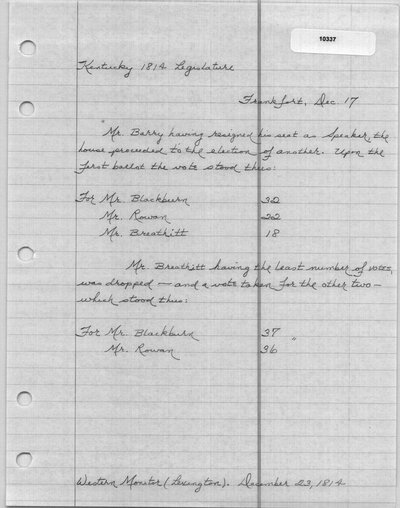 10337
Kentucky 1814 Legislature
Frankfort, Dec. 17
Mr. Barry having resigned his seat as Speaker, the
house proceeded to the election of another. Upon the
first ballot the vote stood thus:
For Mr. Blackburn 32
Mr. Rowan 22
Mr. Breathitt 18
Mr. Breathitt having the least number of votes,
was dropped — and a vote taken for the other two —
which stood thus:
For Mr. Blackburn 37
Mr. Rowan 36 "
Western Monitor (Lexington). December 23, 1814